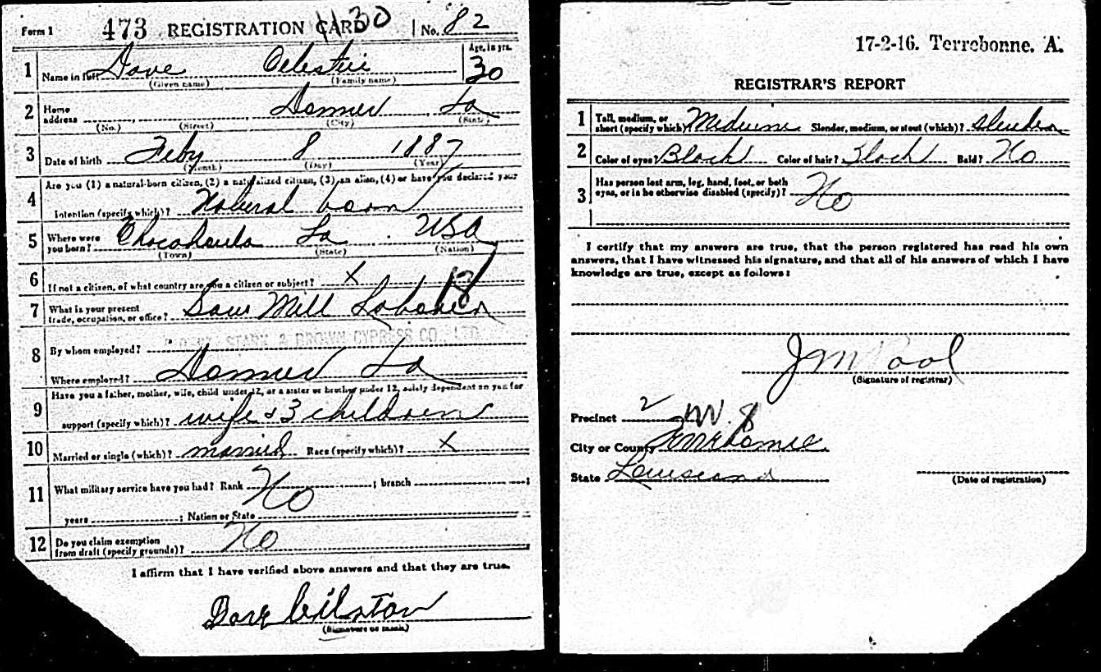 Form 1 473 REGISTRATION CARD 1130 No. 82
1 Name in full Dave Celestie Age, in yrs. 30
(Given name) (Family name)
2 Home address Donner La
(No.) (Street) (City) (State)
3 Date of birth Feby 8 1887
(Month) (Day) (Year)
4 Are you (1) a natural-born citizen, (2) a naturalized citizen, (3) an alien, (4) or have you declared your
intention (specify which)? Natural born
5 Where were you born? Chacahoula La USA
(Town) (State) (Nation)
6 If not a citizen, of what country are you a citizen or subject? X
7 What is your present trade, occupation, or office? Saw Mill Laborer
8 By whom employed? STARK & BROWN CYPRESS CO., LTD.
Where employed? Donner La
9 Have you a father, mother, wife, child under 12, or a sister or brother under 12, solely dependent on you for
support (specify which)? wife & 3 children
10 Married or single (which)? married Race (specify which)? X
11 What military service have you had? Rank No ; branch ;
years ; Nation or State
12 Do you claim exemption from draft (specify grounds)? No
I affirm that I have verified above answers and that they are true.
(Signature or mark)
17-2-16. Terrebonne. A.
REGISTRAR'S REPORT
1 Tall, medium, or short (specify which)? Medium Slender, medium, or stout (which)? Slender
2 Color of eyes? Black Color of hair? Black Bald? No
3 Has person lost arm, leg, hand, foot, or both
eyes, or is he otherwise disabled (specify)? No
I certify that my answers are true, that the person registered has read his own
answers, that I have witnessed his signature, and that all of his answers of which I have
knowledge are true, except as follows:
J M Pool
(Signature of registrar)
Precinct 2 W. 8
City or County Terrebonne
State Louisiana
(Date of registration)